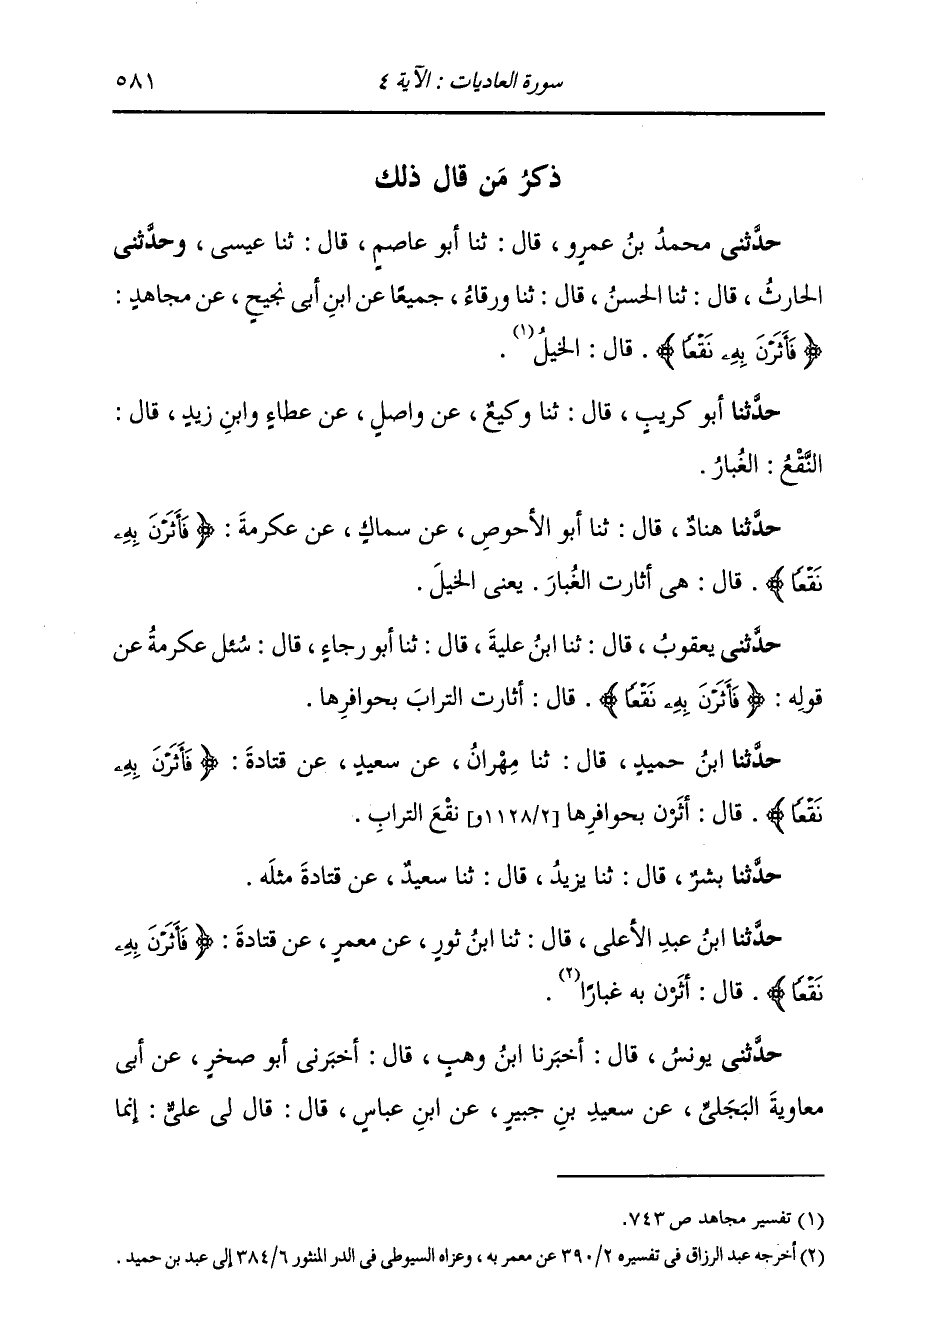 سورة العاديات : الآية ٤
٥٨١
ذكرُ مَن قال ذلك
حدَّثنى محمدُ بنُ عمرٍو ، قال : ثنا أبو عاصمٍ ، قال : ثنا عيسى ، وحدَّثنى
الحارثُ ، قال : ثنا الحسنُ ، قال : ثنا ورقاءُ ، جميعًا عن ابنِ أبى نجيحٍ ، عن مجاهدٍ :
﴿ فَأَثَرْنَ بِهِۦ نَقْعًا ﴾ . قال : الخيلُ(١) .
حدَّثنا أبو كريبٍ ، قال : ثنا وكيعٌ ، عن واصلٍ ، عن عطاءٍ وابنِ زيدٍ ، قال :
النَّقْعُ : الغُبارُ .
حدَّثنا هنادٌ ، قال : ثنا أبو الأحوصِ ، عن سماكٍ ، عن عكرمةَ : ﴿ فَأَثَرْنَ بِهِۦ
نَقْعًا ﴾ . قال : هى أثارت الغُبارَ . يعنى الخيلَ .
حدَّثنى يعقوبُ ، قال : ثنا ابنُ عليةَ ، قال : ثنا أبو رجاءٍ ، قال : سُئل عكرمةُ عن
قولِه : ﴿ فَأَثَرْنَ بِهِۦ نَقْعًا ﴾ . قال : أثارت الترابَ بحوافرِها .
حدَّثنا ابنُ حميدٍ ، قال : ثنا مِهْرانُ ، عن سعيدٍ ، عن قتادةَ : ﴿ فَأَثَرْنَ بِهِۦ
نَقْعًا ﴾ . قال : أثَرْن بحوافرِها [١١٢٨/٢و] نقْعَ الترابِ .
حدَّثنا بشرٌ ، قال : ثنا يزيدُ ، قال : ثنا سعيدٌ ، عن قتادةَ مثلَه .
حدَّثنا ابنُ عبدِ الأعلى ، قال : ثنا ابنُ ثورٍ ، عن معمرٍ ، عن قتادةَ : ﴿ فَأَثَرْنَ بِهِۦ
نَقْعًا ﴾ . قال : أثَرْن به غبارًا(٢) .
حدَّثنى يونسُ ، قال : أخبَرنا ابنُ وهبٍ ، قال : أخبَرنى أبو صخرٍ ، عن أبى
معاويةَ البَجَلىِّ ، عن سعيدِ بنِ جبيرٍ ، عن ابنِ عباسٍ ، قال : قال لى علىٌّ : إنما
(١) تفسير مجاهد ص ٧٤٣.
(٢) أخرجه عبد الرزاق فى تفسيره ٣٩٠/٢ عن معمر به ، وعزاه السيوطى فى الدر المنثور ٣٨٤/٦ إلى عبد بن حميد .